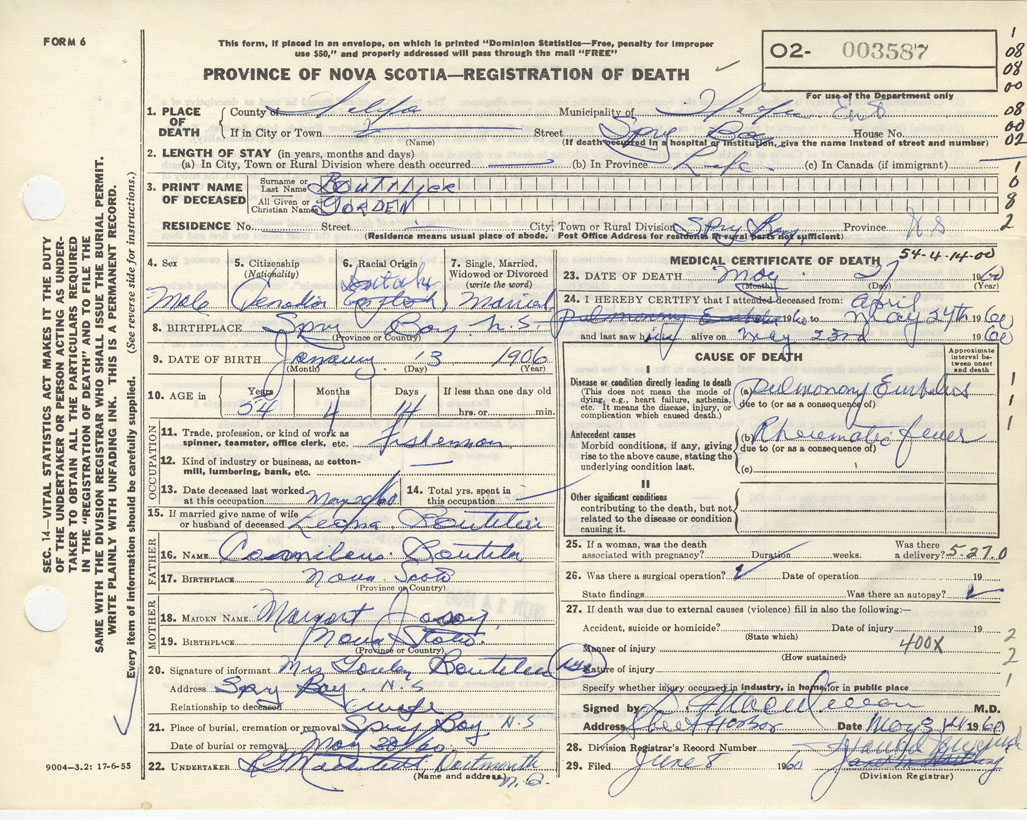 FORM 6
This form, if placed in an envelope, on which is printed "Dominion Statistics—Free, penalty for improper
use $50," and properly addressed will pass through the mail "FREE"
PROVINCE OF NOVA SCOTIA—REGISTRATION OF DEATH
02- 003587
For use of the Department only
1. PLACE OF DEATH
County of Municipality of
If in City or Town Street Spry Bay House No.
(Name) (If death occurred in a hospital or institution, give the name instead of street and number)
2. LENGTH OF STAY (in years, months and days)
(a) In City, Town or Rural Division where death occurred (b) In Province Life (c) In Canada (if immigrant)
3. PRINT NAME OF DECEASED
Surname or Last Name BOUTILIER
All Given or Christian Names GORDEN
RESIDENCE No. Street City, Town or Rural Division Spry Bay Province N.S
(Residence means usual place of abode. Post Office Address for residents in rural parts not sufficient)
4. Sex Male
5. Citizenship (Nationality) Canadian
6. Racial Origin
7. Single, Married, Widowed or Divorced (write the word) Married
8. BIRTHPLACE Spry Bay N.S.
(Province or Country)
9. DATE OF BIRTH January 13 1906
(Month) (Day) (Year)
10. AGE IF
Years 54 Months 4 Days 14 If less than one day old
hrs. or min.
OCCUPATION
11. Trade, profession, or kind of work as
spinner, teamster, office clerk, etc. fisherman
12. Kind of industry or business, as cotton-
mill, lumbering, bank, etc.
13. Date deceased last worked
at this occupation
14. Total yrs. spent in
this occupation
15. If married give name of wife
or husband of deceased Boutilier
FATHER
16. NAME
17. BIRTHPLACE Nova Scotia
(Province or Country)
MOTHER
18. MAIDEN NAME
19. BIRTHPLACE Nova Scotia
(Province or Country)
20. Signature of informant Mrs Boutilier
Address Spry Bay. N.S
Relationship to deceased wife
21. Place of burial, cremation or removal Spry Bay N.S
Date of burial or removal May 30/60
22. UNDERTAKER Dartmouth
(Name and address) N.S.
MEDICAL CERTIFICATE OF DEATH 54-4-14-00
23. DATE OF DEATH May 27 1960
(Month) (Year)
24. I HEREBY CERTIFY that I attended deceased from: April
1960 to May 27th 1960
and last saw him alive on May 23rd 1960
CAUSE OF DEATH
Approximate interval between onset and death
I
Disease or condition directly leading to death
(This does not mean the mode of
dying, e.g., heart failure, asthenia,
etc. It means the disease, injury, or
complication which caused death.)
(a) Pulmonary Embolus
due to (or as a consequence of)
Antecedent causes
Morbid conditions, if any, giving
rise to the above cause, stating the
underlying condition last.
(b) Rheumatic fever
due to (or as a consequence of)
(c)
II
Other significant conditions
contributing to the death, but not
related to the disease or condition
causing it.
25. If a woman, was the death
associated with pregnancy? Duration weeks. Was there
a delivery? 5.27.0
26. Was there a surgical operation? Date of operation 19
State findings Was there an autopsy?
27. If death was due to external causes (violence) fill in also the following:—
Accident, suicide or homicide? Date of injury 19
(State which)
Manner of injury 400X
(How sustained)
Nature of injury
Specify whether injury occurred in industry, in home, or in public place
Signed by M.D.
Address Sheet Harbor Date May 1960
28. Division Registrar's Record Number
29. Filed June 8 1960
(Division Registrar)
SEC. 14—VITAL STATISTICS ACT MAKES IT THE DUTY
OF THE UNDERTAKER OR PERSON ACTING AS UNDER-
TAKER TO OBTAIN ALL THE PARTICULARS REQUIRED
IN THE "REGISTRATION OF DEATH" AND TO FILE THE
SAME WITH THE DIVISION REGISTRAR WHO SHALL ISSUE THE BURIAL PERMIT.
WRITE PLAINLY WITH UNFADING INK. THIS IS A PERMANENT RECORD.
Every item of information should be carefully supplied. (See reverse side for instructions.)
9004-3.2: 17-6-55